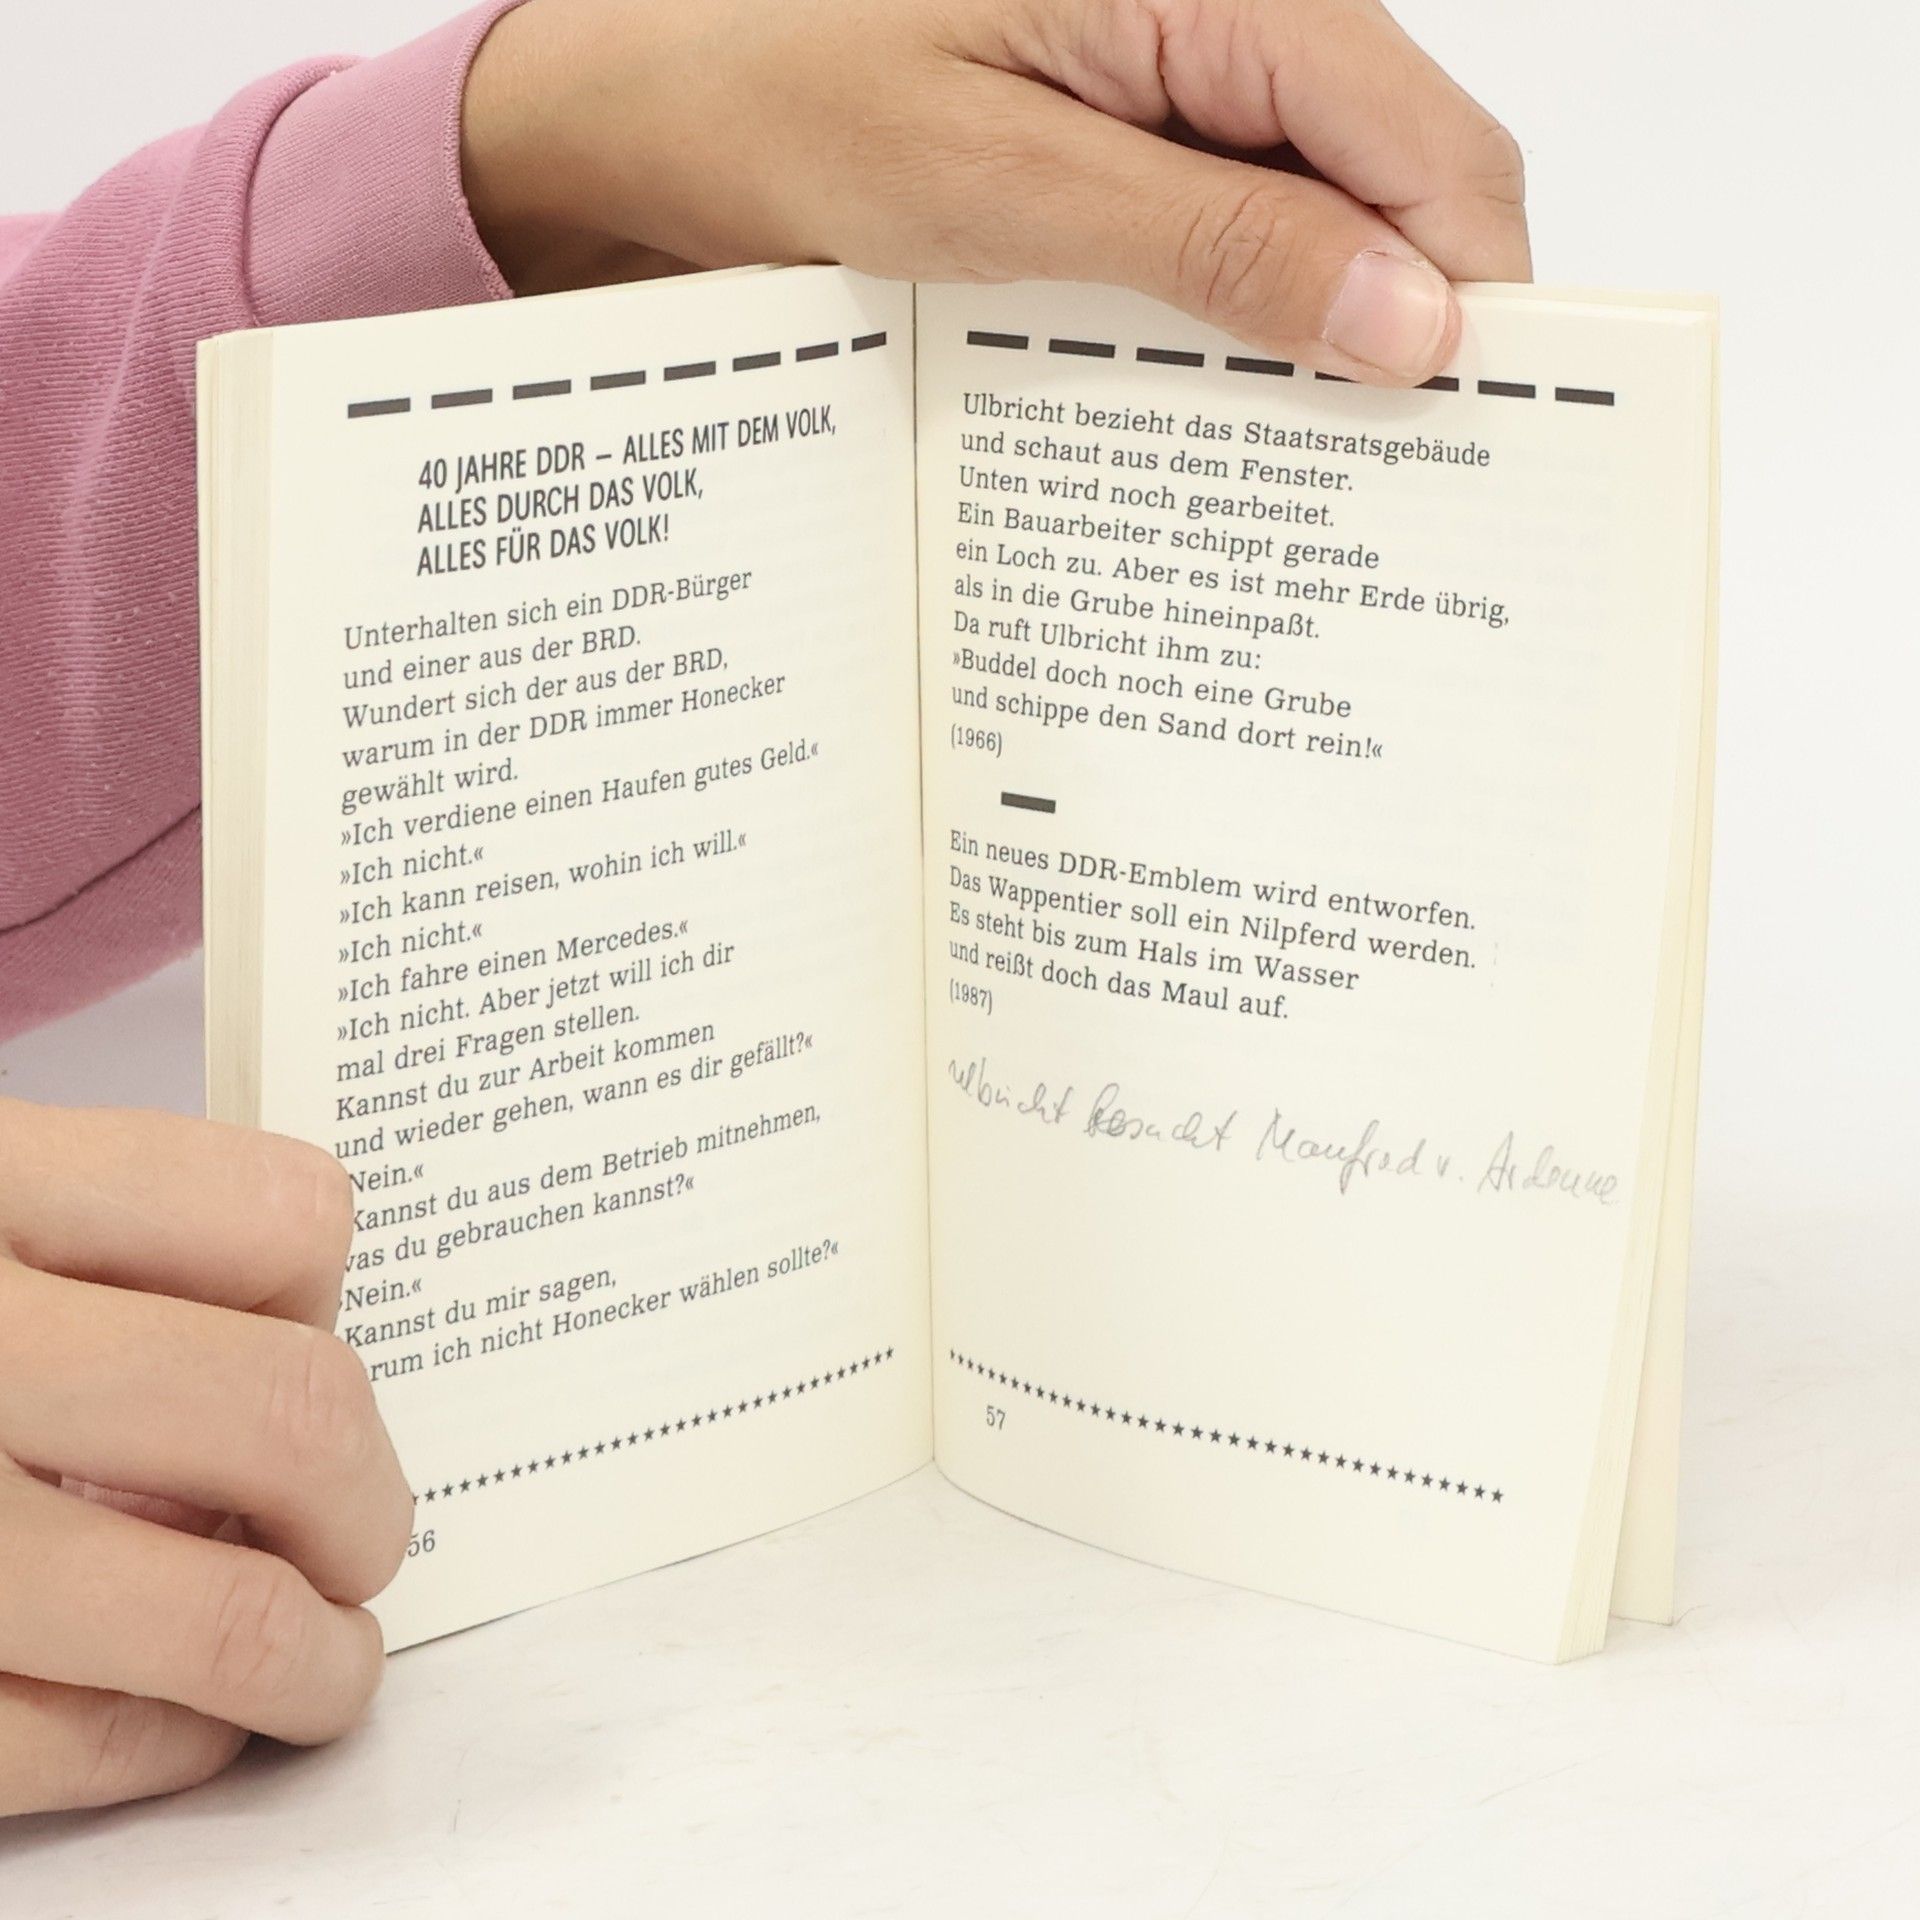 40 JAHRE DDR – ALLES MIT DEM VOLK,
ALLES DURCH DAS VOLK,
ALLES FÜR DAS VOLK!
Unterhalten sich ein DDR-Bürger
und einer aus der BRD.
Wundert sich der aus der BRD,
warum in der DDR immer Honecker
gewählt wird.
»Ich verdiene einen Haufen gutes Geld.«
»Ich nicht.«
»Ich kann reisen, wohin ich will.«
»Ich nicht.«
»Ich fahre einen Mercedes.«
»Ich nicht. Aber jetzt will ich dir
mal drei Fragen stellen.
Kannst du zur Arbeit kommen
und wieder gehen, wann es dir gefällt?«
Nein.«
Kannst du aus dem Betrieb mitnehmen,
was du gebrauchen kannst?«
»Nein.«
Kannst du mir sagen,
rum ich nicht Honecker wählen sollte?«
56
Ulbricht bezieht das Staatsratsgebäude
und schaut aus dem Fenster.
Unten wird noch gearbeitet.
Ein Bauarbeiter schippt gerade
ein Loch zu. Aber es ist mehr Erde übrig,
als in die Grube hineinpaßt.
Da ruft Ulbricht ihm zu:
»Buddel doch noch eine Grube
und schippe den Sand dort rein!«
(1966)
Ein neues DDR-Emblem wird entworfen.
Das Wappentier soll ein Nilpferd werden.
Es steht bis zum Hals im Wasser
und reißt doch das Maul auf.
(1987)
Ulbricht besucht Manfred v. Ardenne
57